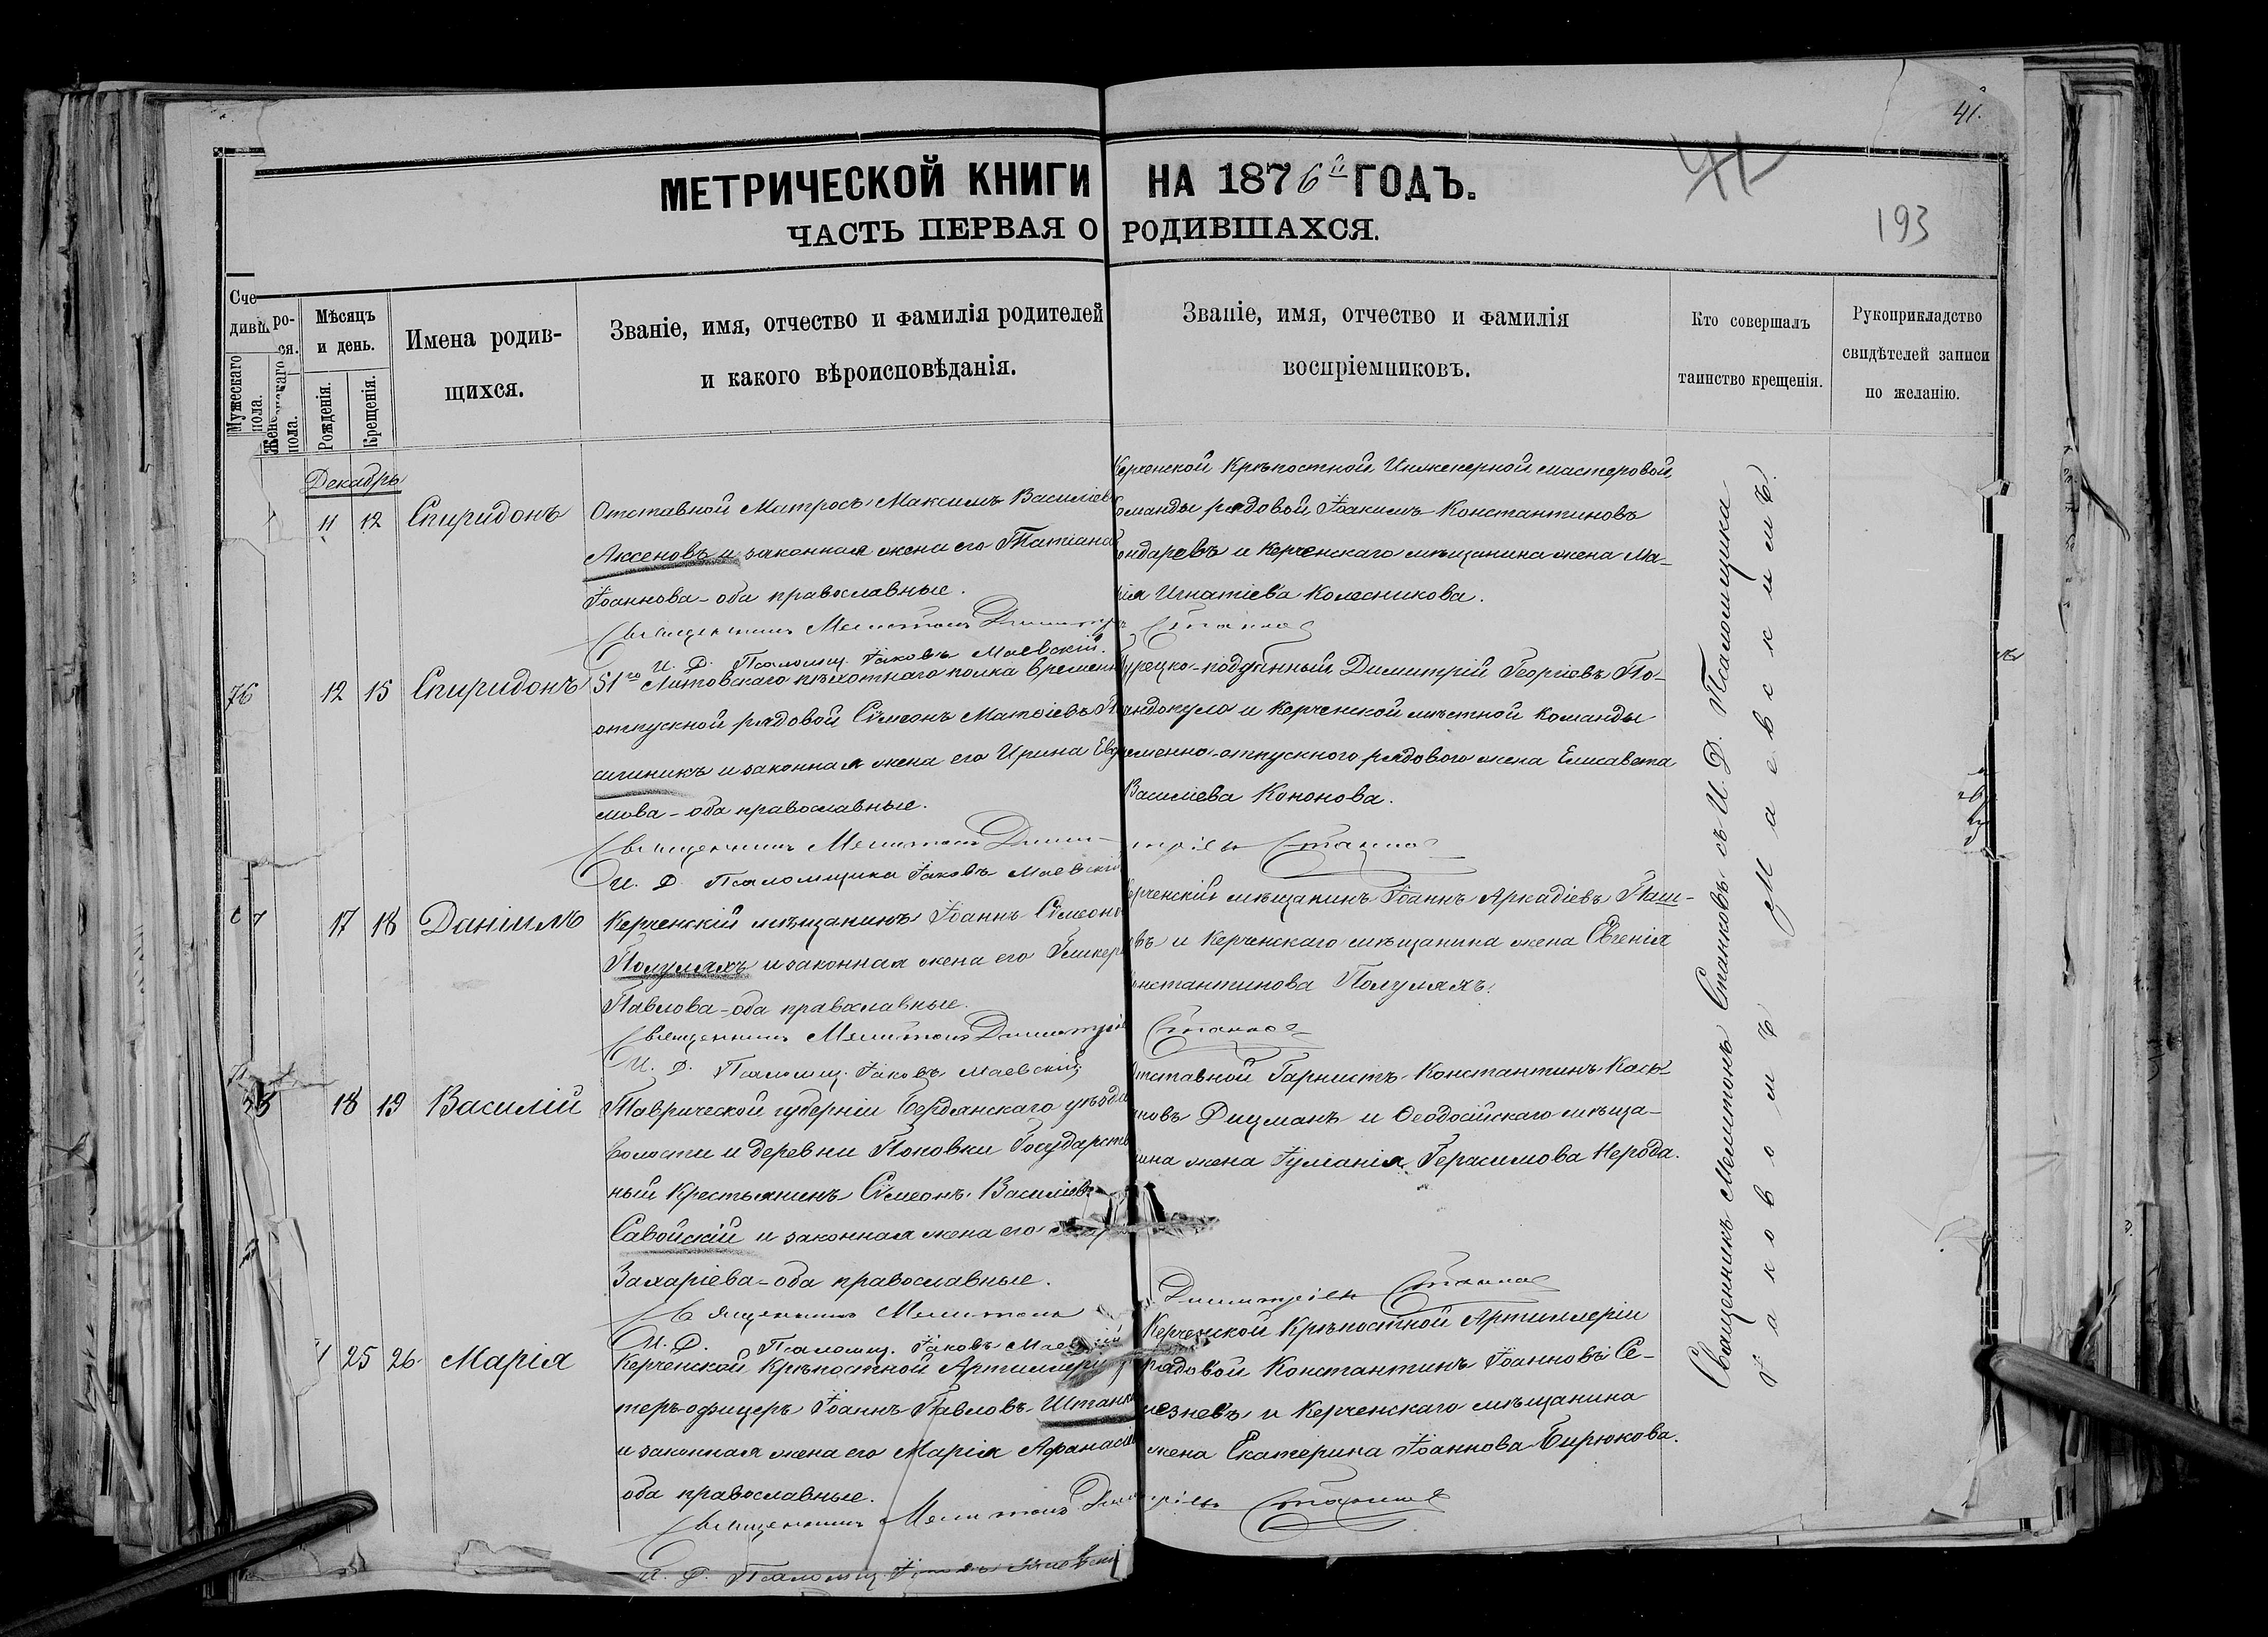 41.
41
193
МЕТРИЧЕСКОЙ КНИГИ НА 1876й ГОДЪ.
ЧАСТЬ ПЕРВАЯ О РОДИВШАХСЯ.
Сче ро-
дивш ся.
Мужескаго пола.
Женскаго пола.
Мѣсяцъ и день.
Рожденія.
Крещенія.
Имена родив-
щихся.
Званіе, имя, отчество и фамилія родителей
и какого вѣроисповѣданія.
Званіе, имя, отчество и фамилія
воспріемниковъ.
Кто совершалъ
таинство крещенія.
Рукоприкладство
свидѣтелей записи
по желанію.
Декабрь
11 12 Спиридонъ
Отставной Матросъ Максимъ Василіев
Аксеновъ и законная жена его Татіана
Іоаннова - оба православные.
Священникъ Мелитонъ Димитр
И. Д. Псаломщ. Іаковъ Маевскій.
Керченской Крѣпостной Инженерной мастеровой
команды рядовой Іоакимъ Константиновъ
ондаревъ и Керченскаго мѣщанина жена Ма-
рія Игнатіева Колесникова.
Станков
76 12 15 Спиридонъ
51го Литовскаго пѣхотнаго полка временно
отпускной рядовой Сѵмеонъ Матѳіевъ П
шиникъ и законная жена его Ирина Евд
мова - оба православные.
Священникъ Мелитонъ Дими-
И. Д. Псаломщика Іаковъ Маевскій
Турецко-подданный Димитрій Георгіевъ По-
андопуло и Керченской мѣстной команды
временно-отпускного рядового жена Елисавета
Василіева Кононова.
тріевъ Станков
7 17 18 Даніилъ
Керченскій мѣщанинъ Іоаннъ Сѵмеонов
Полуляхъ и законная жена его Гликер
Павлова - оба православные.
Священникъ Мелитонъ Димитріев
И. Д. Псаломщ. Іаковъ Маевскій
Керченскій мѣщанинъ Іоаннъ Аркадіевъ Паш-
овъ и Керченскаго мѣщанина жена Евгенія
Константинова Полуляхъ.
Станков
8 18 19 Василій
Таврической губерніи Бердянскаго уѣзда
волости и деревни Поповки Государствен
ный Крестьянинъ Сѵмеонъ Василіевъ
Савойскій и законная жена его Мар
Захаріева - оба православные.
Священникъ Мелитонъ
И. Д. Псаломщ. Іаковъ Маевскій
Отставной Гарнистъ Константинъ Касья-
новъ Дицманъ и Ѳеодосійскаго мѣща-
нина жена Іуліанія Герасимова Нерода.
Димитріевъ Станков
25 26 Марія
Керченской Крѣпостной Артиллеріи у
теръ-офицеръ Іоаннъ Павловъ Штанк
и законная жена его Марія Аѳанасіев
оба православные.
Священникъ Мелитонъ Дими
И. Д. Псаломщ. Іаковъ Маевскій
Керченской Крѣпостной Артиллеріи
рядовой Константинъ Іоанновъ Се-
лезневъ и Керченскаго мѣщанина
жена Екатерина Іоаннова Бирюкова.
тріевъ Станков
Священникъ Мелитонъ Станковъ съ И. Д. Псаломщика
Іаковомъ Маевскимъ.